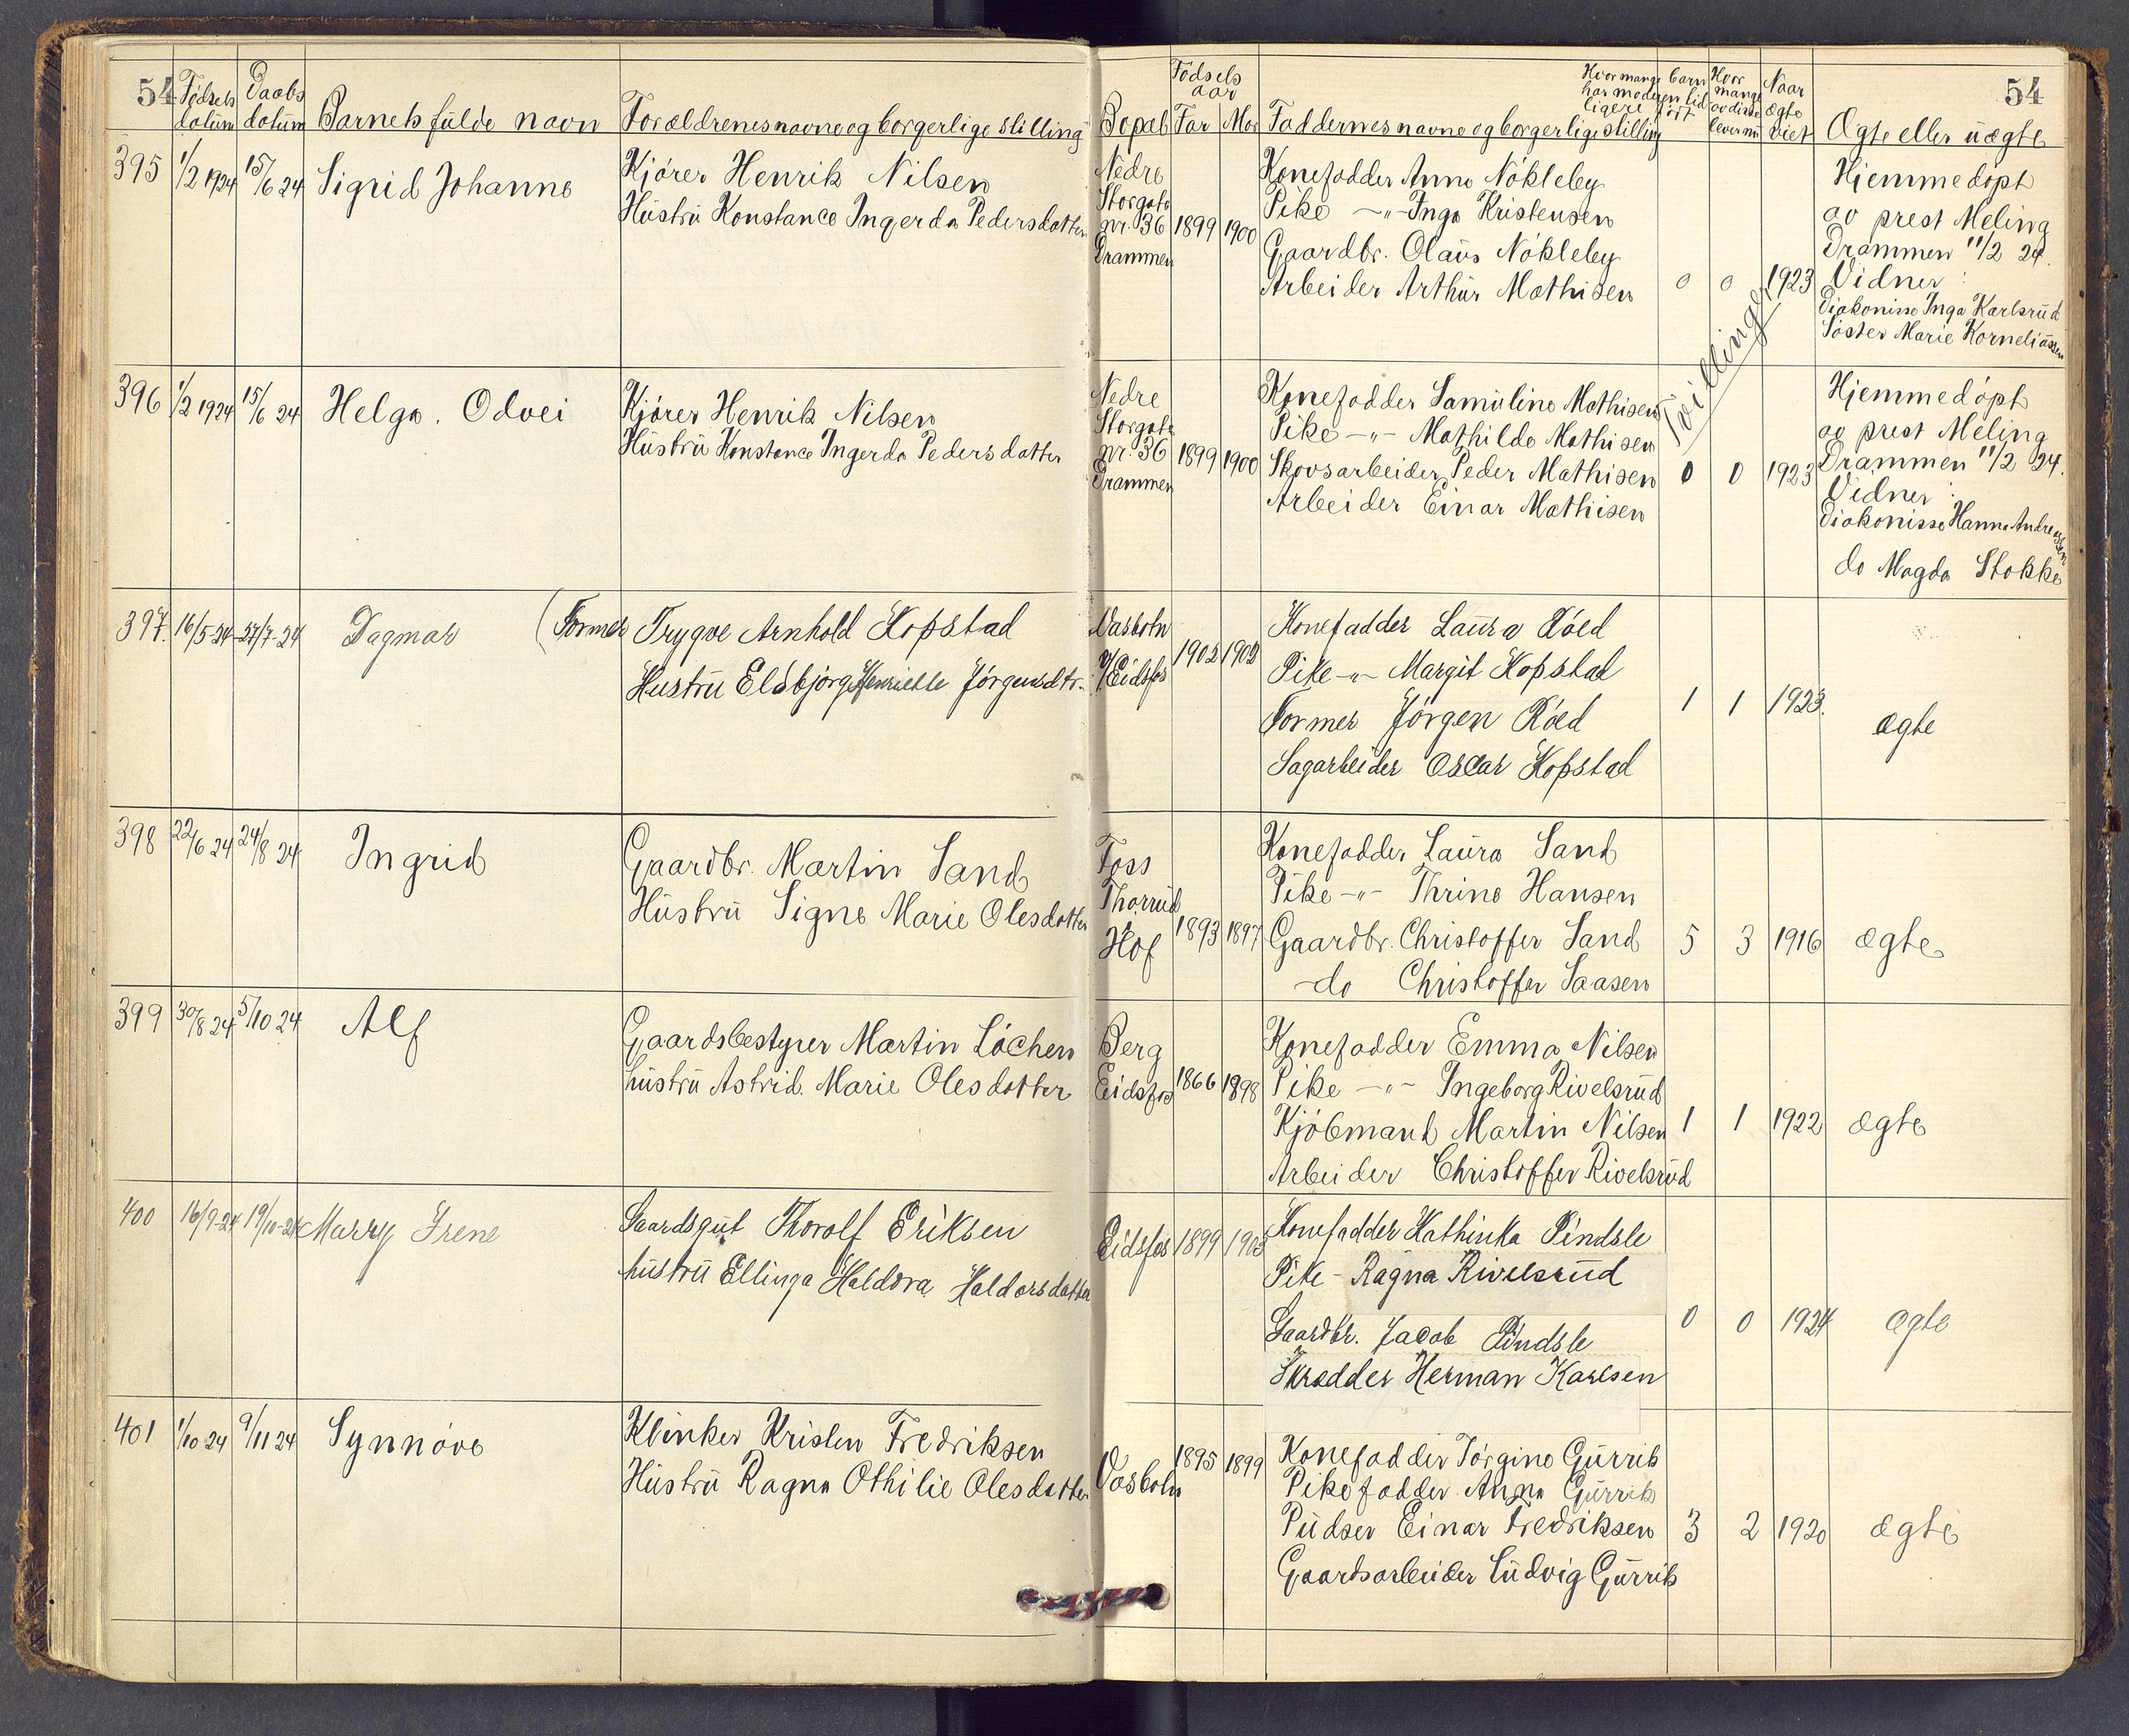 54
Fødsels datum
Daabs datum
Barnets fulde navn
Forældrenes navne og borgerlige stilling
Bopæl
Fødsels aar
Far
Mor
Faddernes navne og borgerlige stilling
Hvor mange barn har moderen tidligere født
Hvor mange av disse lever nu
Naar ægte viet
Ægte eller uægte
54
395
1/2 1924
15/6 24
Sigrid Johanne
Kjører Henrik Nilsen
Hustru Konstance Ingerda Pedersdatter
Nedre
Storgate
nr. 36
Drammen
1899
1900
Konefadder Anne Nökleby
Pike —"— Inga Kristensen
Gaardbr. Olaus Nökleby
Arbeider Arthur Mathisen
0
0
1923
Hjemmedöpt
av prest Meling
Drammen 11/2 24.
Vidner:
Diakonisse Inga Karlsrud
Söster Marie Korneliussen
Tvillinger
396
1/2 1924
15/6 24
Helga. Odvei
Kjører Henrik Nilsen
Hustru Konstance Ingerda Pedersdatter
Nedre
Storgate
nr. 36
Drammen
1899
1900
Konefadder Samuline Mathisen
Pike —"— Mathilde Mathisen
Skovsarbeider Peder Mathisen
Arbeider Einar Mathisen
0
0
1923
Hjemmedöpt
av prest Meling
Drammen 11/2 24.
Vidner:
Diakonisse Hanna Andreassen
do Magda Stokke
397.
16/5-24
27/7-24
Dagmar
(Former Trygve Arnhold Kopstad
Hustru Elsbjørg Henriette Jörgensdtr.
Vasbotn
v/Eidsfos
1902
1902
Konefadder Laura Röed
Pike —"— Margit Kopstad
Former Jörgen Röed
Sagarbeider Oscar Kopstad
1
1
1923.
ægte
398
22/6 24
24/8 24
Ingrid
Gaardbr. Martin Sand
Hustru Signe Marie Olesdatter
Foss
Thorrud
Hof
1893
1897
Konefadder Laura Sand
Pike —"— Thrine Hansen
Gaardbr. Christoffer Sand
do Christoffer Saasen
5
3
1916
ægte
399
30/8 24
5/10 24
Alf
Gaardsbestyrer Martin Löchen
hustru Astrid Marie Olesdatter
Berg
Eidsfos
1866
1898
Konefadder Emma Nilsen
Pike —"— Ingeborg Rivelsrud
Kjöbmand Martin Nilsen
Arbeider Christoffer Rivelsrud
1
1
1922
ægte
400
16/9-24
19/10-24
Marry Irene
Gaardsgut Thorolf Eriksen
hustru Ellinga Haldora Haldorsdatter
Eidsfos
1899
1903
Konefadder Kathinka Pindsle
Pike - Ragna Rivelsrud
Gaardbr. Jacob Pindsle
Skredder Herman Karlsen
0
0
1924
ægte
401
1/10 24
9/11 24
Synnöve
Klinker Kristen Fredriksen
Hustru Ragna Othilie Olesdatter
Vasbotn
1895
1899
Konefadder Jörgine Gurrik
Pikefadder Anna Gurrik
Pudser Einar Fredriksen
Gaardsarbeider Ludvig Gurrik
3
2
1920
ægte